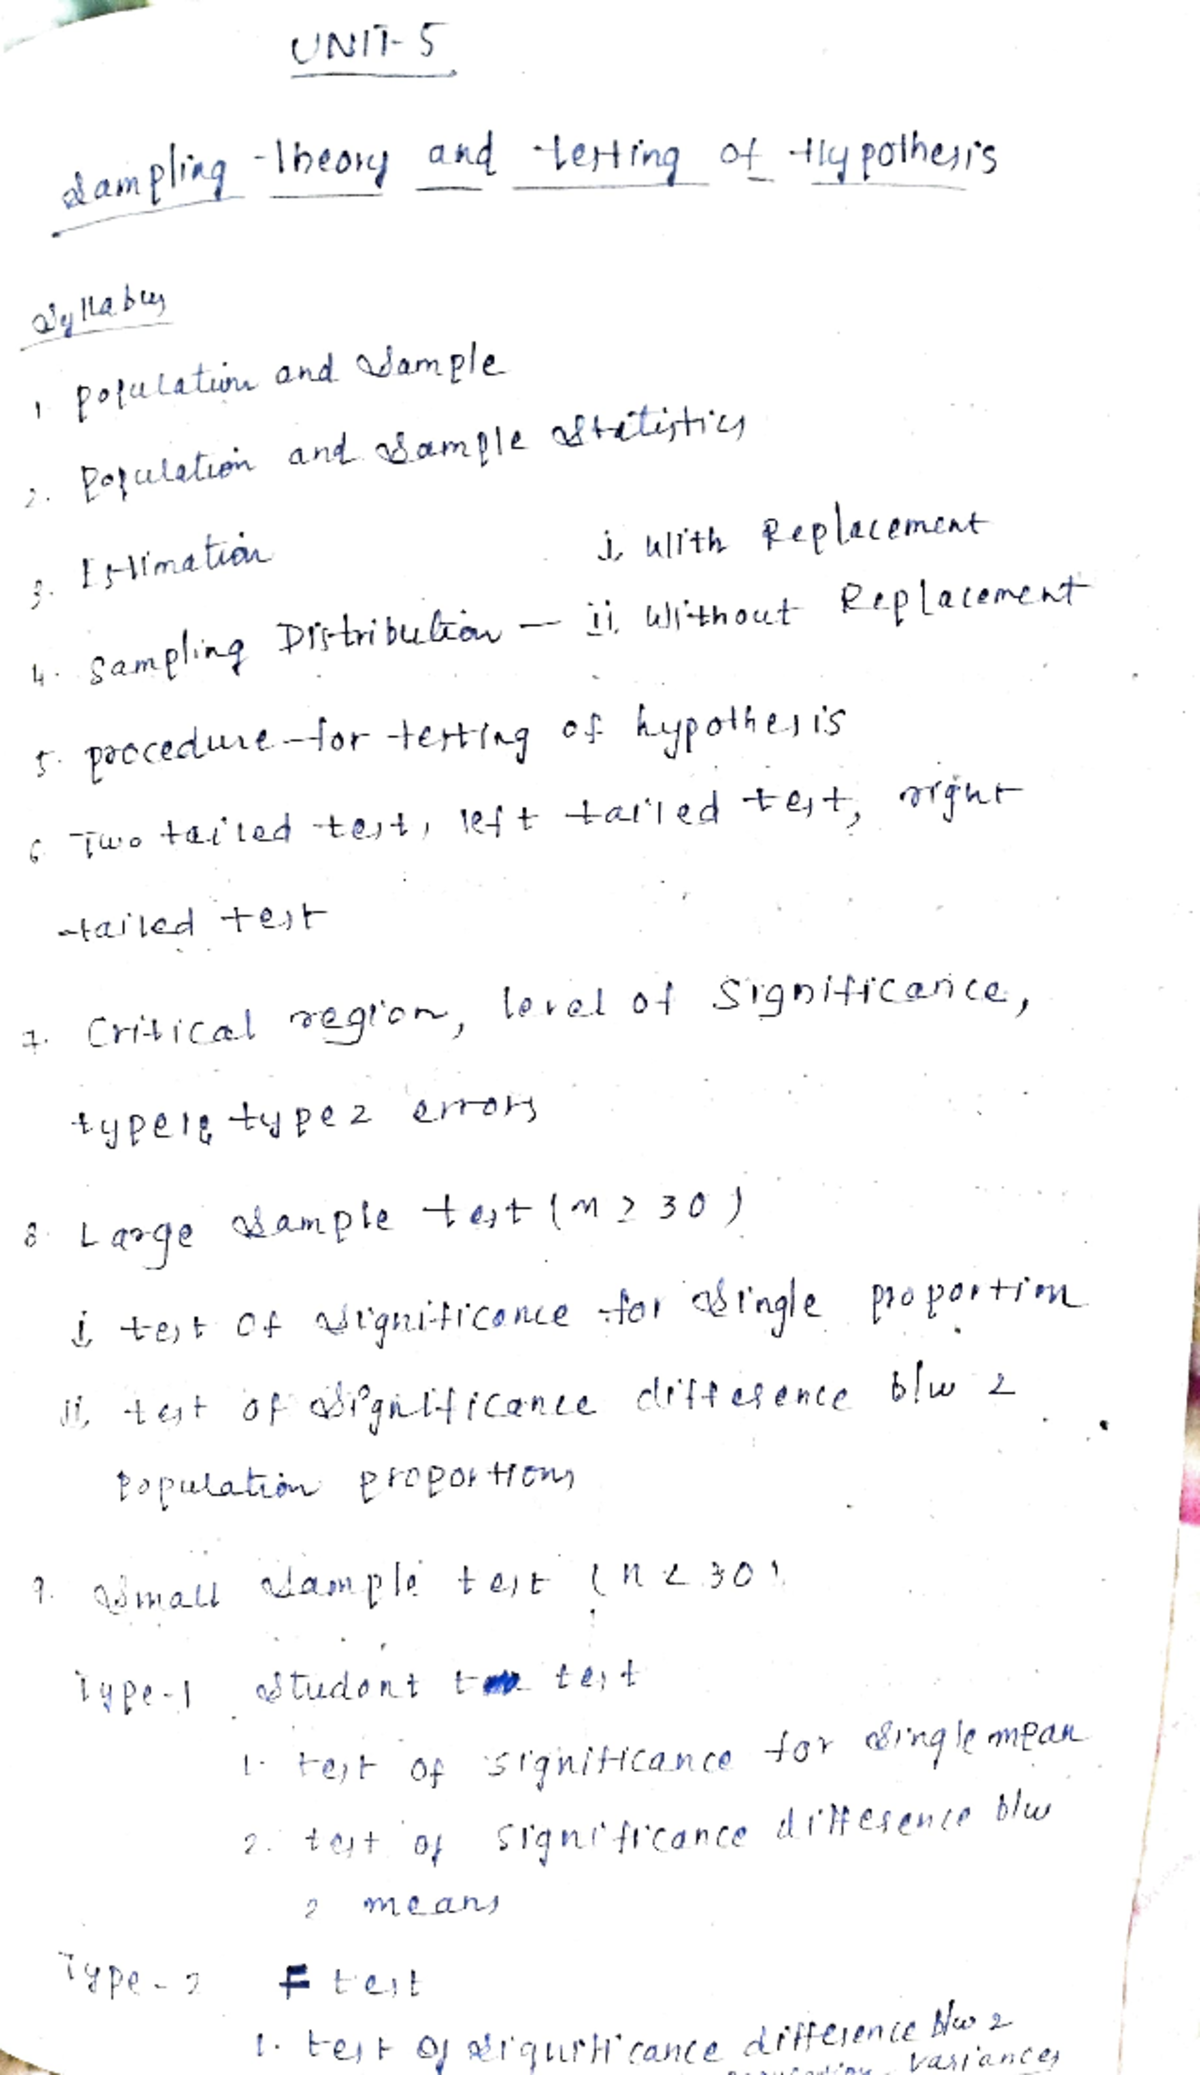 UNIT-5
Sampling Theory and testing of Hypothesis
Syllabus
1 population and Sample
2. Population and Sample Statistics
3. Estimation
i, With Replacement
4. Sampling Distribution — ii, Without Replacement
5. procedure for testing of hypothesis
6 Two tailed test, left tailed test, right
tailed test
7. Critical region, level of Significance,
type1& type2 errors
8. Large Sample test (n ≥ 30)
i, test of significance for Single proportion
ii, test of Significance difference b/w 2
Population proportions
9. Small Sample test (n < 30)
Type-1 Student t test
1. test of significance for Single mean
2. test of significance difference b/w
2 means
Type-2 F test
1. test of significance difference b/w 2
variances